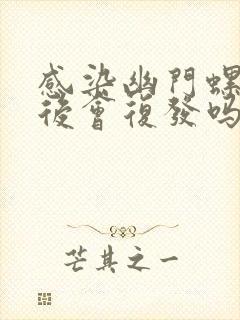 感染幽門螺
後會復發吗
芒其之一